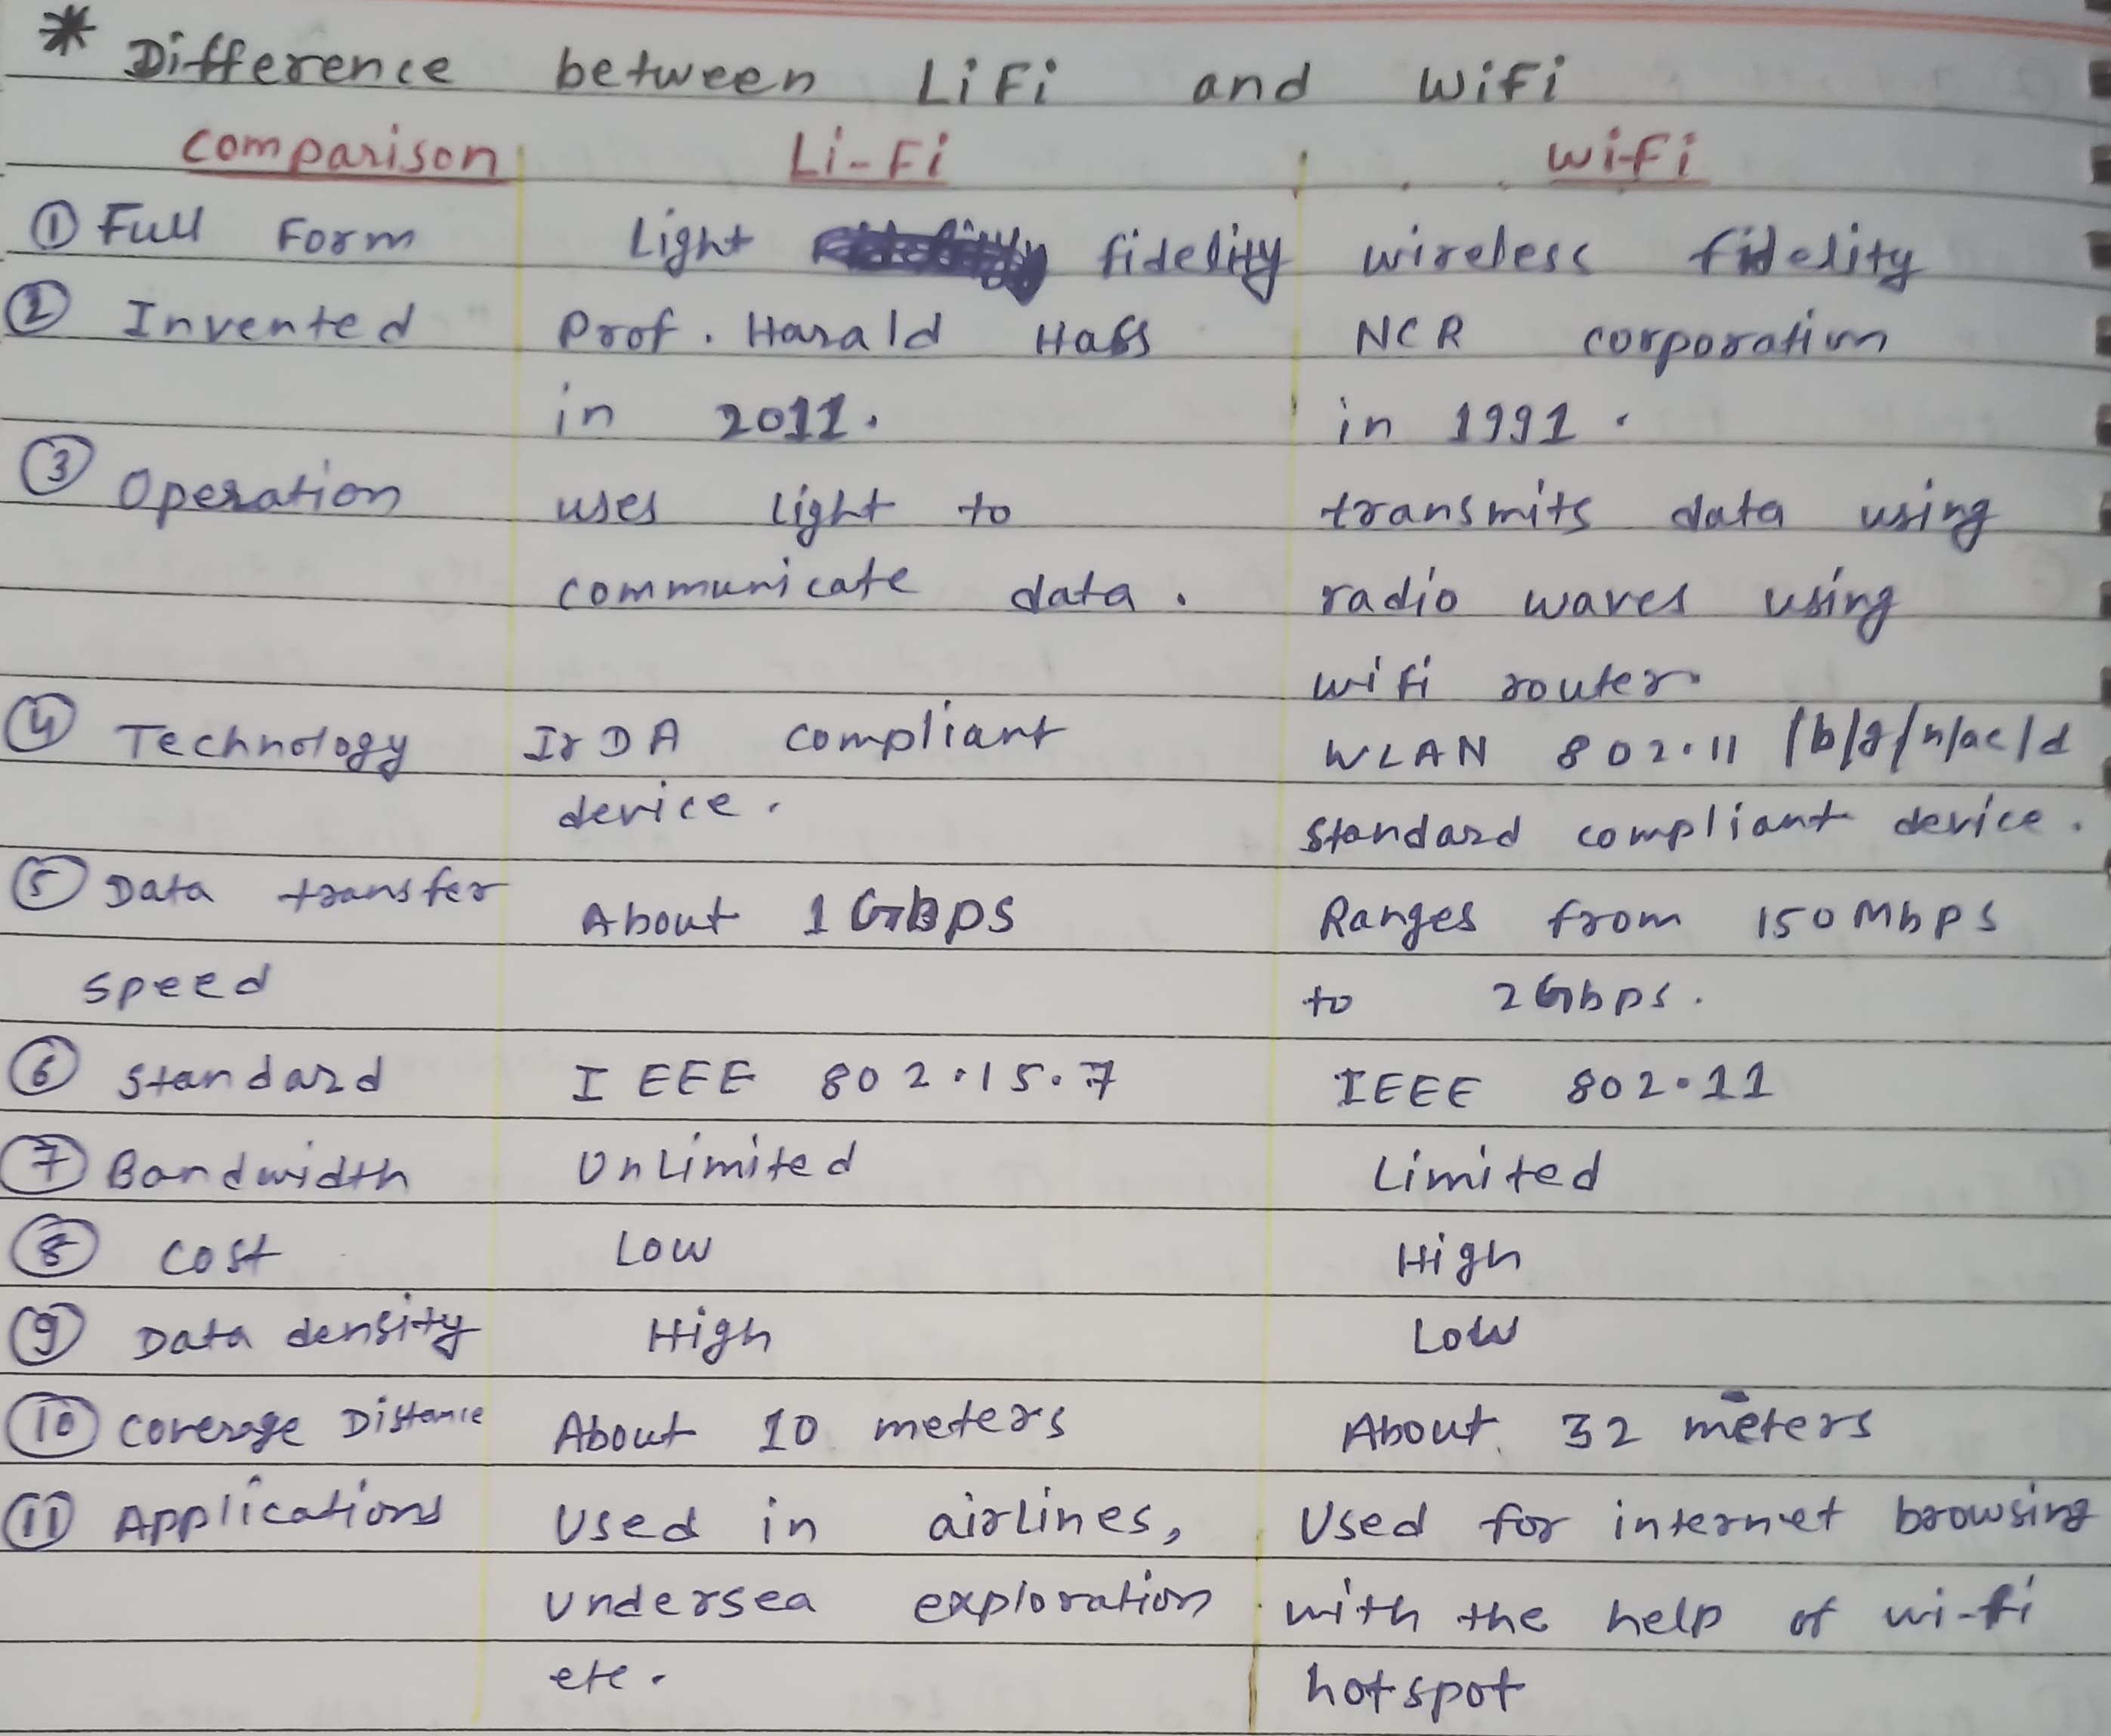 * Difference between LiFi and WiFi
Comparison Li-Fi Wi-Fi
① Full Form Light fidelity wireless fidelity
② Invented Prof. Harald Hass NCR corporation
in 2011. in 1991.
③ Operation uses light to transmits data using
communicate data. radio waves using
wifi router.
④ Technology IrDA compliant WLAN 802.11 /b/g/n/ac/d
device. standard compliant device.
⑤ Data transfer About 1 Gbps Ranges from 150 Mbps
speed to 2 Gbps.
⑥ Standard IEEE 802.15.7 IEEE 802.11
⑦ Bandwidth Unlimited Limited
⑧ Cost Low High
⑨ Data density High Low
⑩ Coverage Distance About 10 meters About 32 meters
⑪ Applications Used in airlines, Used for internet browsing
undersea exploration with the help of wi-fi
etc. hotspot